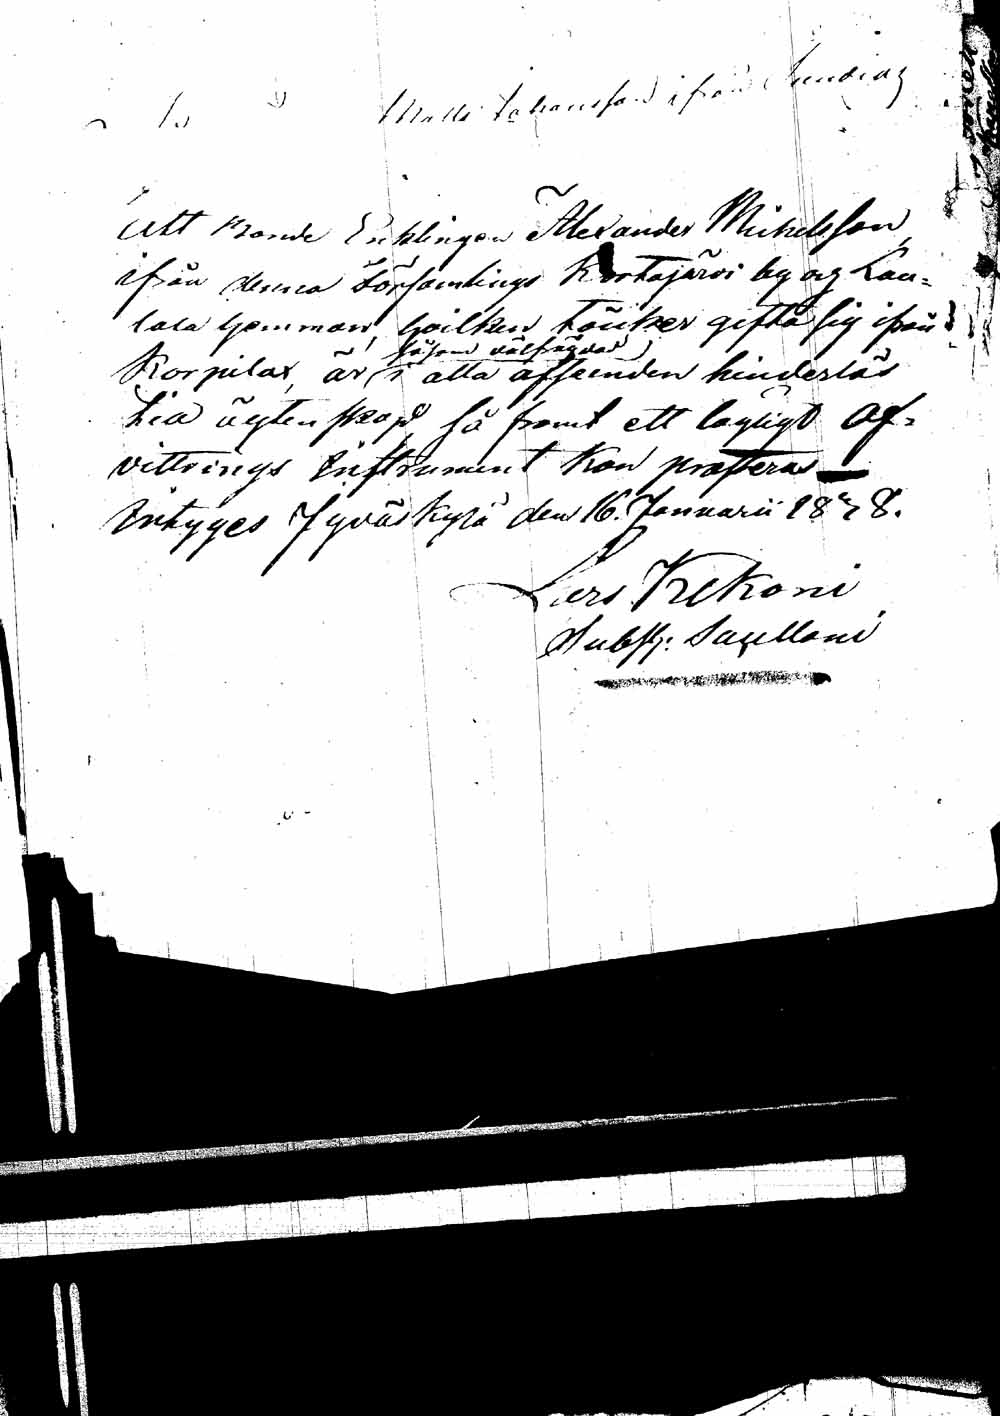 Matts Johansson ifrån
Att Bonde Enklingen Alexander Michelsson
ifrån denna Församlings Kortajärvi by og Lau=
lala hemman, hvilken tänker gifta sig ifrån
såsom välfrägdad
Korpilax, är i alla afseenden hinderlös
till ägtenskap så framt ett lagligt af=
vittrings Instrument kan præsteras
Intyges Jyväskylä den 16. Januarii 1848.
Lars Kekoni
Subst: Sacellani